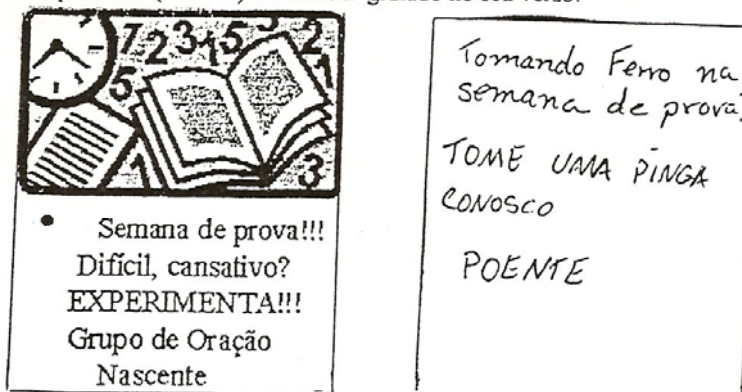 Semana de prova!!!
Difícil, cansativo?
EXPERIMENTA!!!
Grupo de Oração
Nascente
Tomando Ferro na
semana de prova?
TOME UMA PINGA
CONOSCO
POENTE